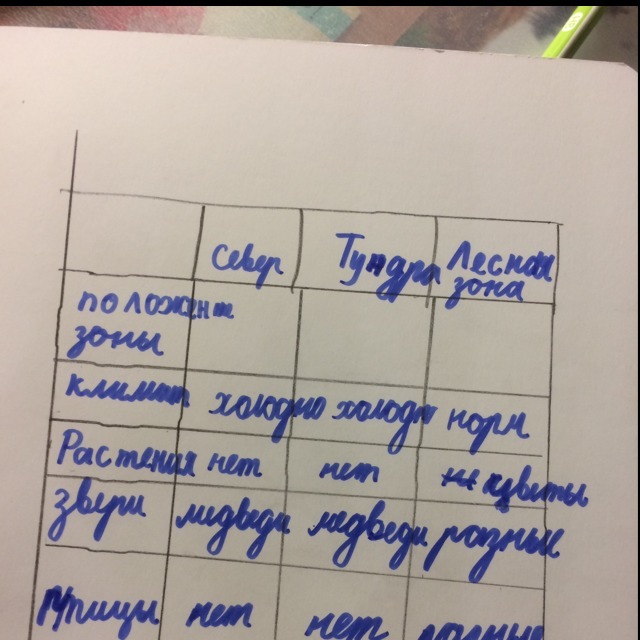 север Тундра Лесная
зона
положент
зоны
климат холодно холодн норм
Растения нет нет цветы
звери медведи медведи разные
птицы нет нет разные